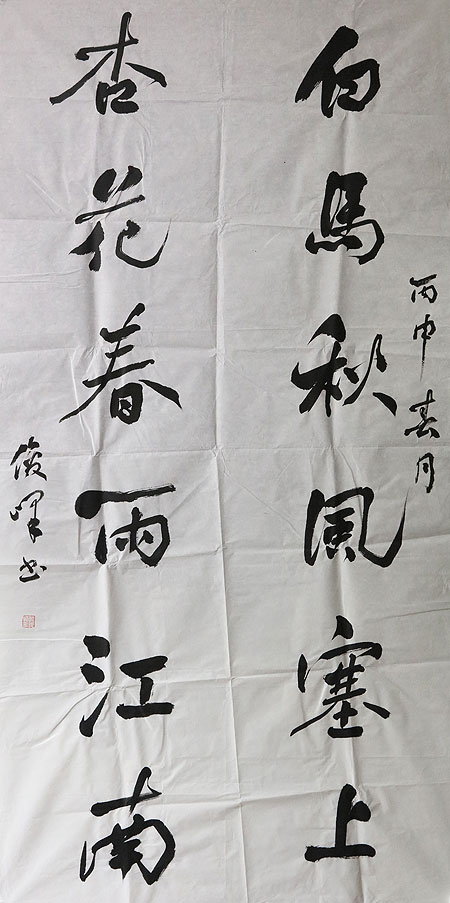 丙申春月
白馬秋風塞上
杏花春雨江南
俊晖书